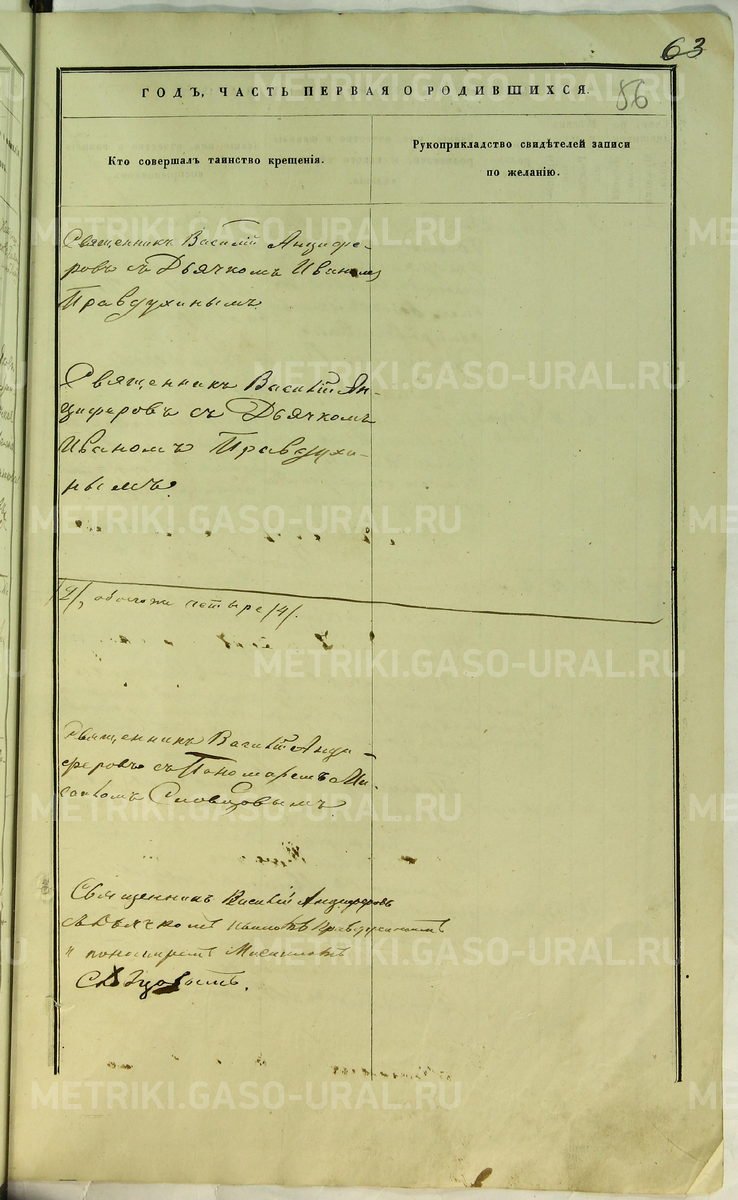 63
ГОДЪ, ЧАСТЬ ПЕРВАЯ О РОДИВШИХСЯ.
86
Кто совершалъ таинство крещенія.
Рукоприкладство свидѣтелей записи
по желанію.
Священникъ Василій Анцифе-
ровъ съ Дьячкомъ Иваномъ
Правдухинымъ.
Священникъ Василій Ан-
циферовъ съ Дьячкомъ
Иваномъ Правдухи-
нымъ.
/2/, обоего четыре /4/.
Священникъ Василій Анци-
феровъ съ Пономаремъ
Словцовымъ.
Священникъ Василій Анциферовъ
съ Дьячкомъ Иваномъ Правдухинымъ
и пономаремъ
Словцовымъ.
METRIKI.GASO-URAL.RU